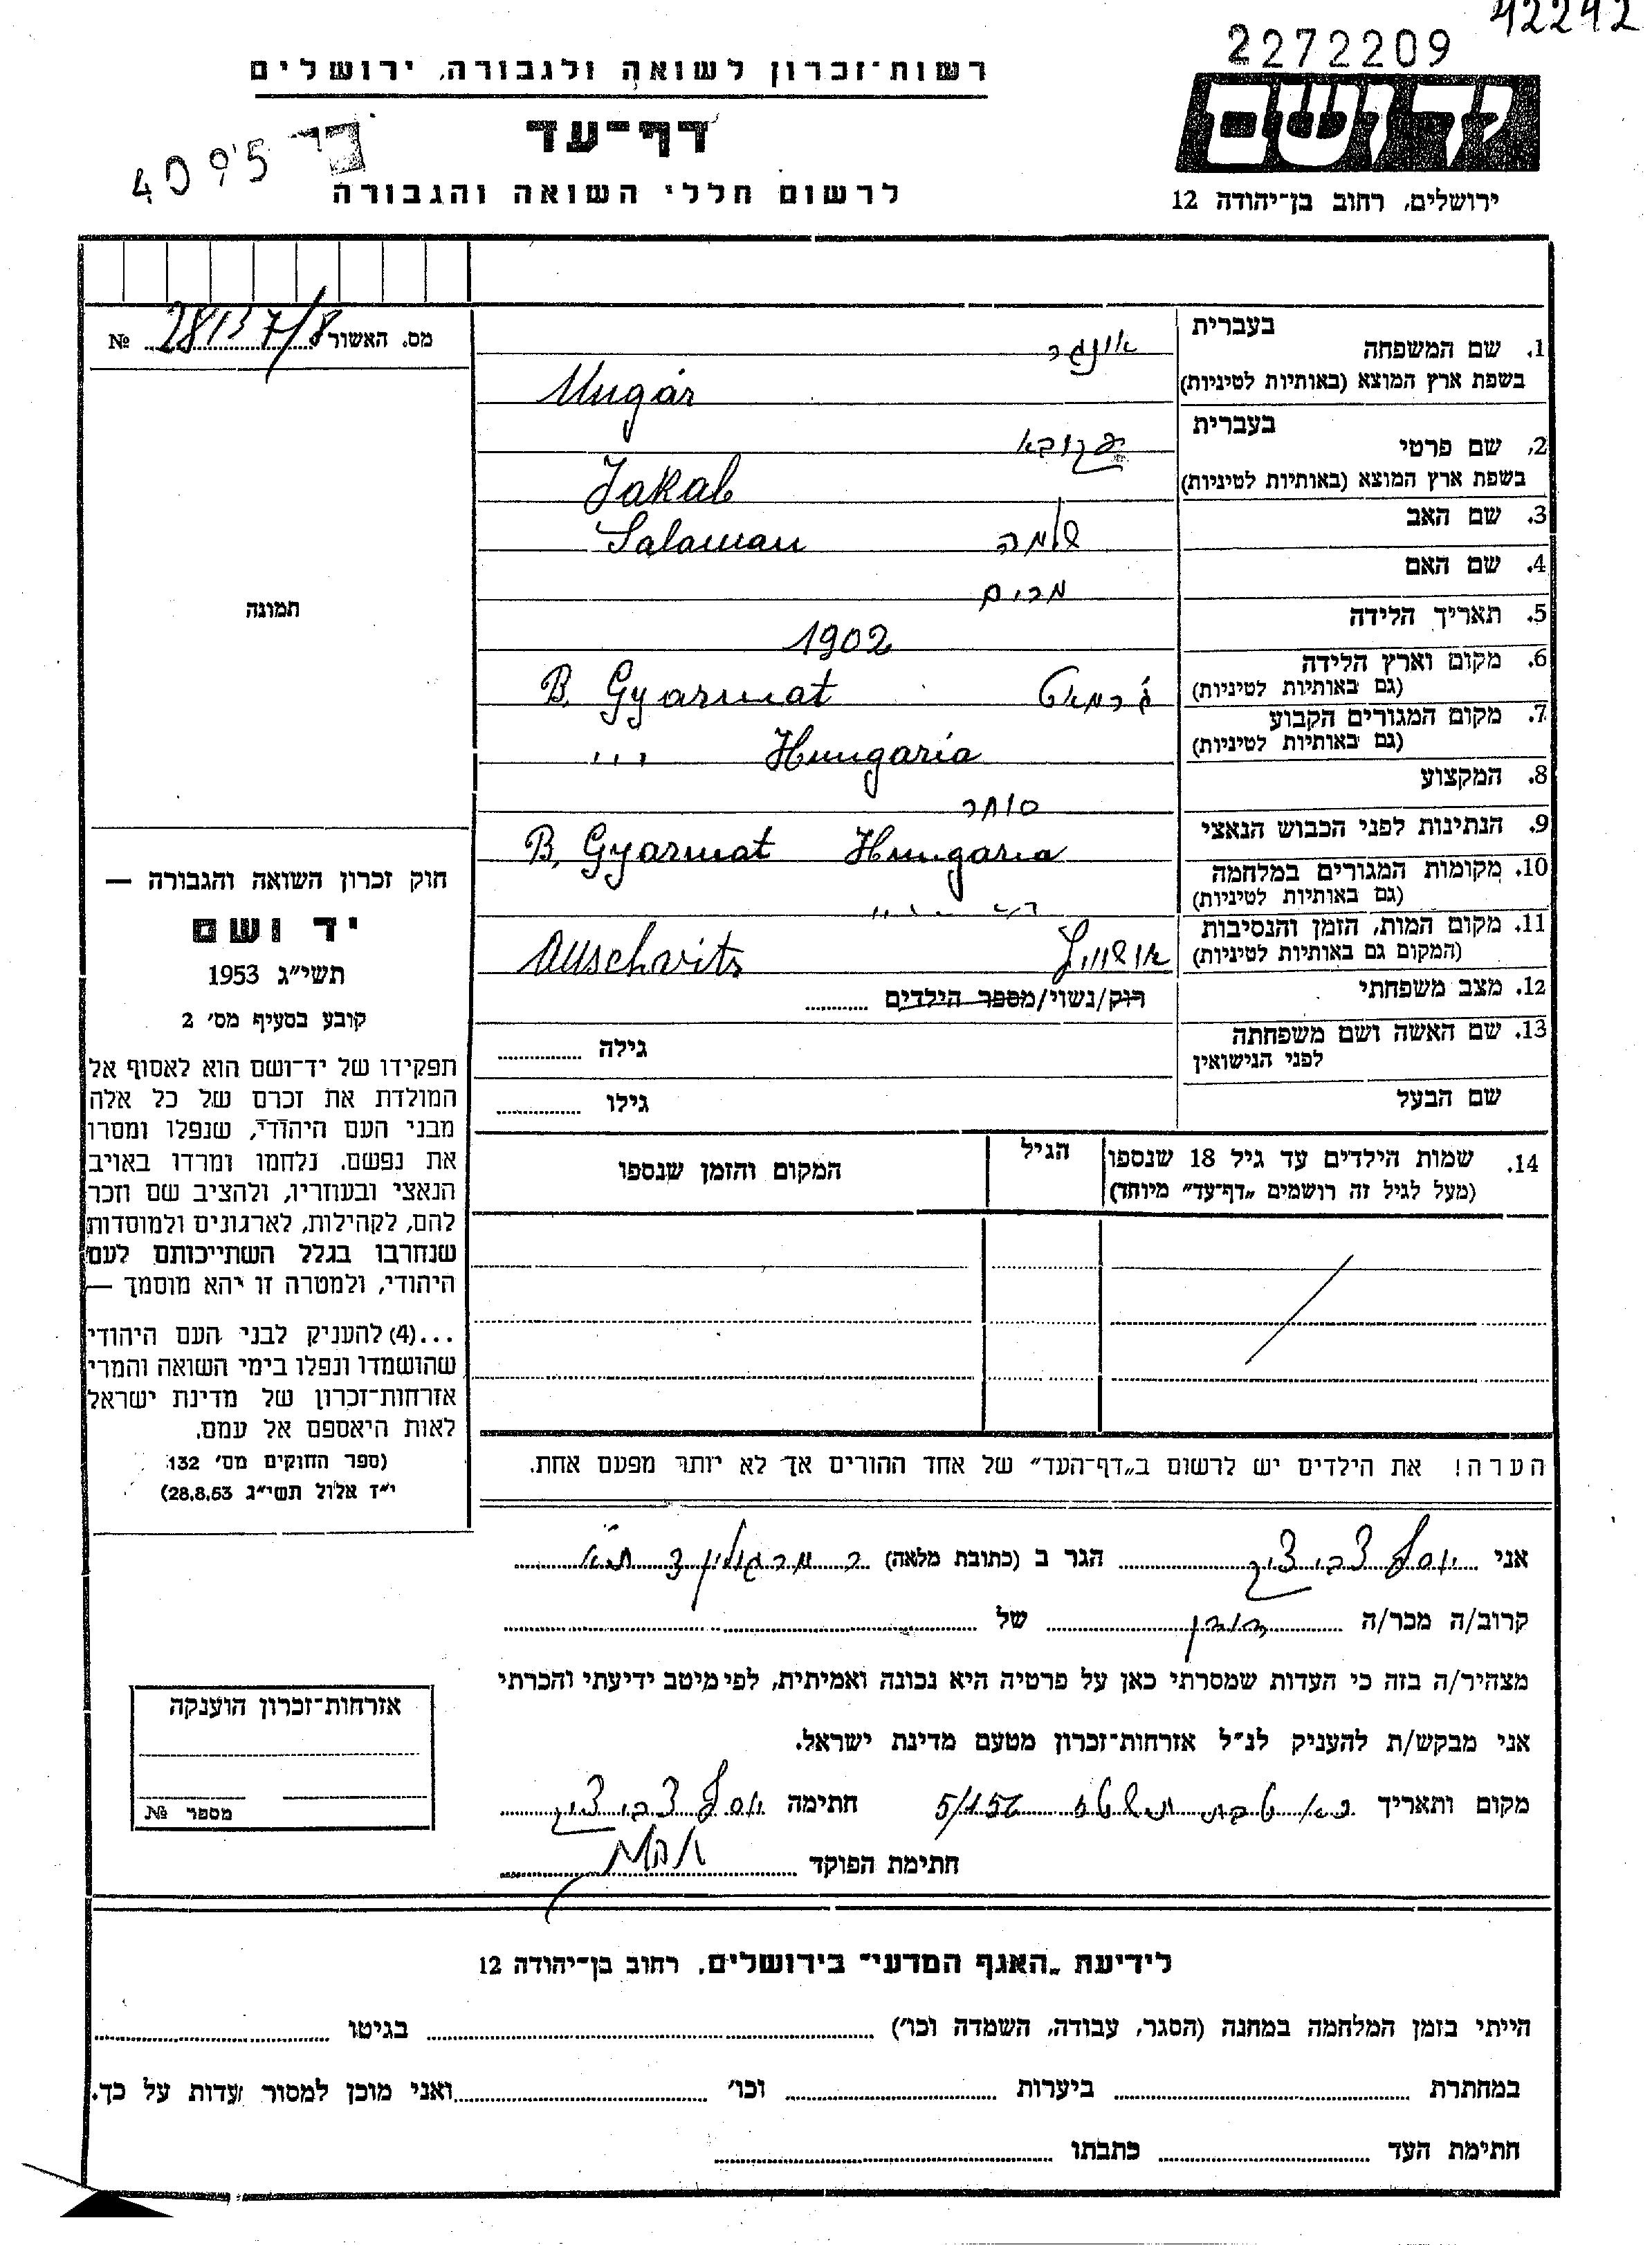 42242
2272209
רשות־זכרון לשואה ולגבורה, ירושלים
יד ושם
דף־עד
4095
לרשום חללי השואה והגבורה
ירושלים, רחוב בן־יהודה 12
מס. האשור 28137/8 №
בעברית
1. שם המשפחה אונגר
בשפת ארץ המוצא (באותיות לטיניות) Ungár
בעברית
2. שם פרטי
בשפת ארץ המוצא (באותיות לטיניות) Jakab
3. שם האב שלמה Salaman
4. שם האם מרים
5. תאריך הלידה 1902
6. מקום וארץ הלידה
(גם באותיות לטיניות) B. Gyarmat
7. מקום המגורים הקבוע
(גם באותיות לטיניות) Hungaria ״ ״
8. המקצוע סוחר
9. הנתינות לפני הכבוש הנאצי B. Gyarmat Hungaria
10. מקומות המגורים במלחמה
(גם באותיות לטיניות)
11. מקום המות, הזמן והנסיבות
(המקום גם באותיות לטיניות) אושוויץ Auschvitz
12. מצב משפחתי רוק/נשוי/מספר הילדים
13. שם האשה ושם משפחתה
לפני הנישואין גילה
שם הבעל גילו
14. שמות הילדים עד גיל 18 שנספו
(מעל לגיל זה רושמים „דף־עד״ מיוחד)
הגיל
המקום והזמן שנספו
הערה! את הילדים יש לרשום ב„דף־העד״ של אחד ההורים אך לא יותר מפעם אחת.
תמונה
חוק זכרון השואה והגבורה —
יד ושם
תשי״ג 1953
קובע בסעיף מס׳ 2
תפקידו של יד־ושם הוא לאסוף אל
המולדת את זכרם של כל אלה
מבני העם היהודי, שנפלו ומסרו
את נפשם, נלחמו ומרדו באויב
הנאצי ובעוזריו, ולהציב שם וזכר
להם, לקהילות, לארגונים ולמוסדות
שנחרבו בגלל השתייכותם לעם
היהודי, ולמטרה זו יהא מוסמך —
...(4) להעניק לבני העם היהודי
שהושמדו ונפלו בימי השואה והמרי
אזרחות־זכרון של מדינת ישראל
לאות היאספם אל עמם.
(ספר החוקים מס׳ 132
י״ז אלול תשי״ג 28.8.53)
אני יוסף הגר ב (כתובת מלאה)
קרוב/ה מכר/ה של
מצהיר/ה בזה כי העדות שמסרתי כאן על פרטיה היא נכונה ואמיתית, לפי מיטב ידיעתי והכרתי
אני מבקש/ת להעניק לנ״ל אזרחות־זכרון מטעם מדינת ישראל.
מקום ותאריך חתימה יוסף
חתימת הפוקד
אזרחות־זכרון הוענקה
מספר №
לידיעת „האגף המדעי״ בירושלים, רחוב בן־יהודה 12
הייתי בזמן המלחמה במחנה (הסגר, עבודה, השמדה וכו׳) בגיטו
במחתרת ביערות וכו׳ ואני מוכן למסור עדות על כך.
חתימת העד כתבתו